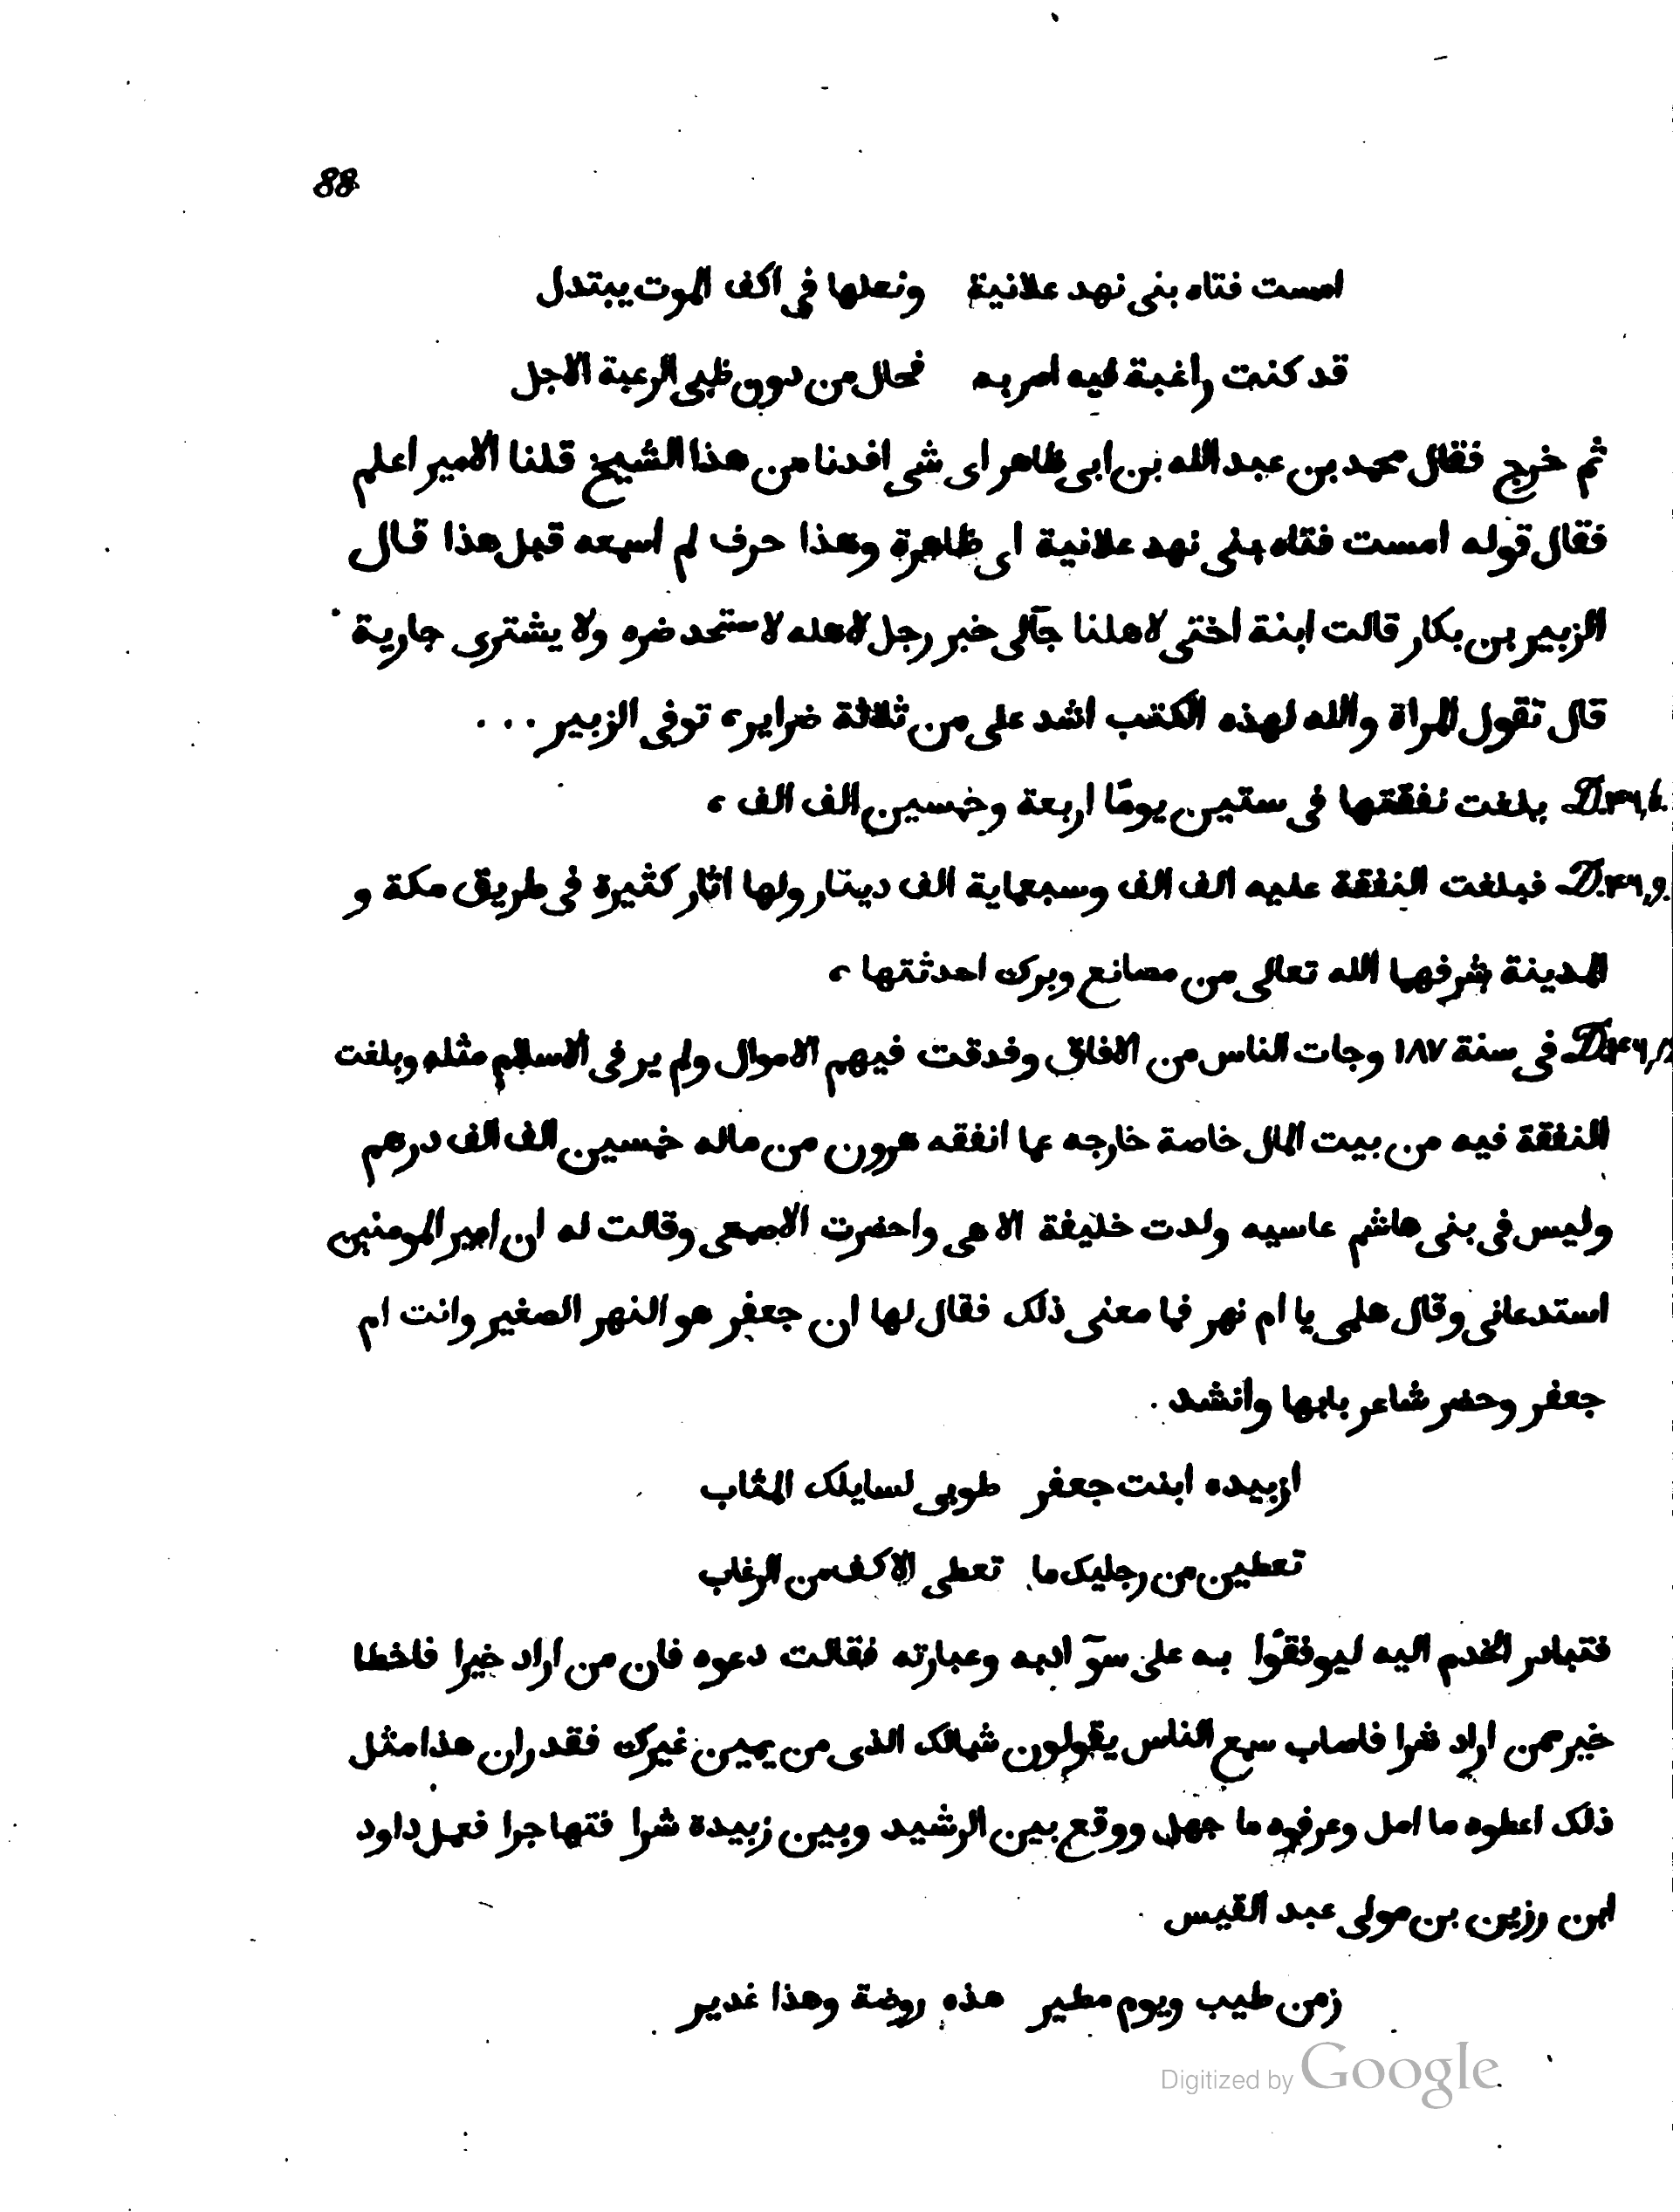 88
امست فتاه بنى نهد علانية ونعلها فى اكف الموت يبتدل
قد كنت راغبة فيه امر به فحال من دون ظبى الرعبة الاجل
ثم خرج فقال محمد بن عبد الله بن ابى ظاهر اى شى افدنا من هذا الشيخ قلنا الامير اعلم
فقال قوله امست فتاه بنى نهد علانية اى ظاهرة وهذا حرف لم اسمعه قبل هذا قال
الزبير بن بكار قالت ابنة اختى لاهلنا جآلى خبر رجل لاهله لا ستحد ضره ولا يشترى جارية
قال تقول المراة والله لهذه الكتب اشد على من ثلاثة ضراير، توفى الزبير ...
D.٣٤٦,6. بلغت نفقتها فى ستين يومًا اربعة وخمسين الف الف ،
D.٣٤٦,9. فبلغت النفقة عليه الف الف وسبعماية الف دينار ولها اثار كثيرة فى طريق مكة و
المدينة شرفهما الله تعالى من مصانع وبرك احدثتها ،
فى سنة ١٨٧ وجات الناس من الافاق وفدقت فيهم الاموال ولم ير فى الاسلام مثله وبلغت
النفقة فيه من بيت المال خاصة خارجه عما انفقه هرون من ماله خمسين الف الف درهم
وليس فى بنى هاشم عاسيه ولدت خليفة الا هى واحضرت الاصمعى وقالت له ان امير المومنين
استدعانى وقال هلمى يا ام نهر فما معنى ذلك فقال لها ان جعفر هو النهر الصغير وانت ام
جعفر وحضر شاعر بابها وانشد .
ازبيده ابنت جعفر طوبى لسايلك المثاب
تعطين من رجليك ما تعطى الاكف من الرغاب
فتبادر الخدم اليه ليوفقوا به على سوّ ادبه وعبارته فقالت دعوه فان من اراد خيرا فاخطا
خير ممن اراد شرا فاصاب سمع الناس يقولون شمالك الذى من يمين غيرك فقدر ان هذا مثل
ذلك اعطوه ما امل وعرفوه ما جهل ووقع بين الرشيد وبين زبيدة شرا فتهاجرا فعمل داود
ابن رزين بن مولى عبد القيس
زمن طيب ويوم مطير هذه روضة وهذا غدير
Digitized by Google